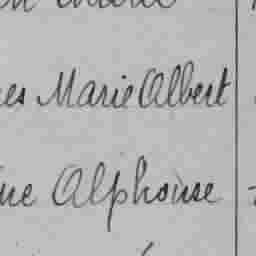 es Marie Albert
ue Alphonse